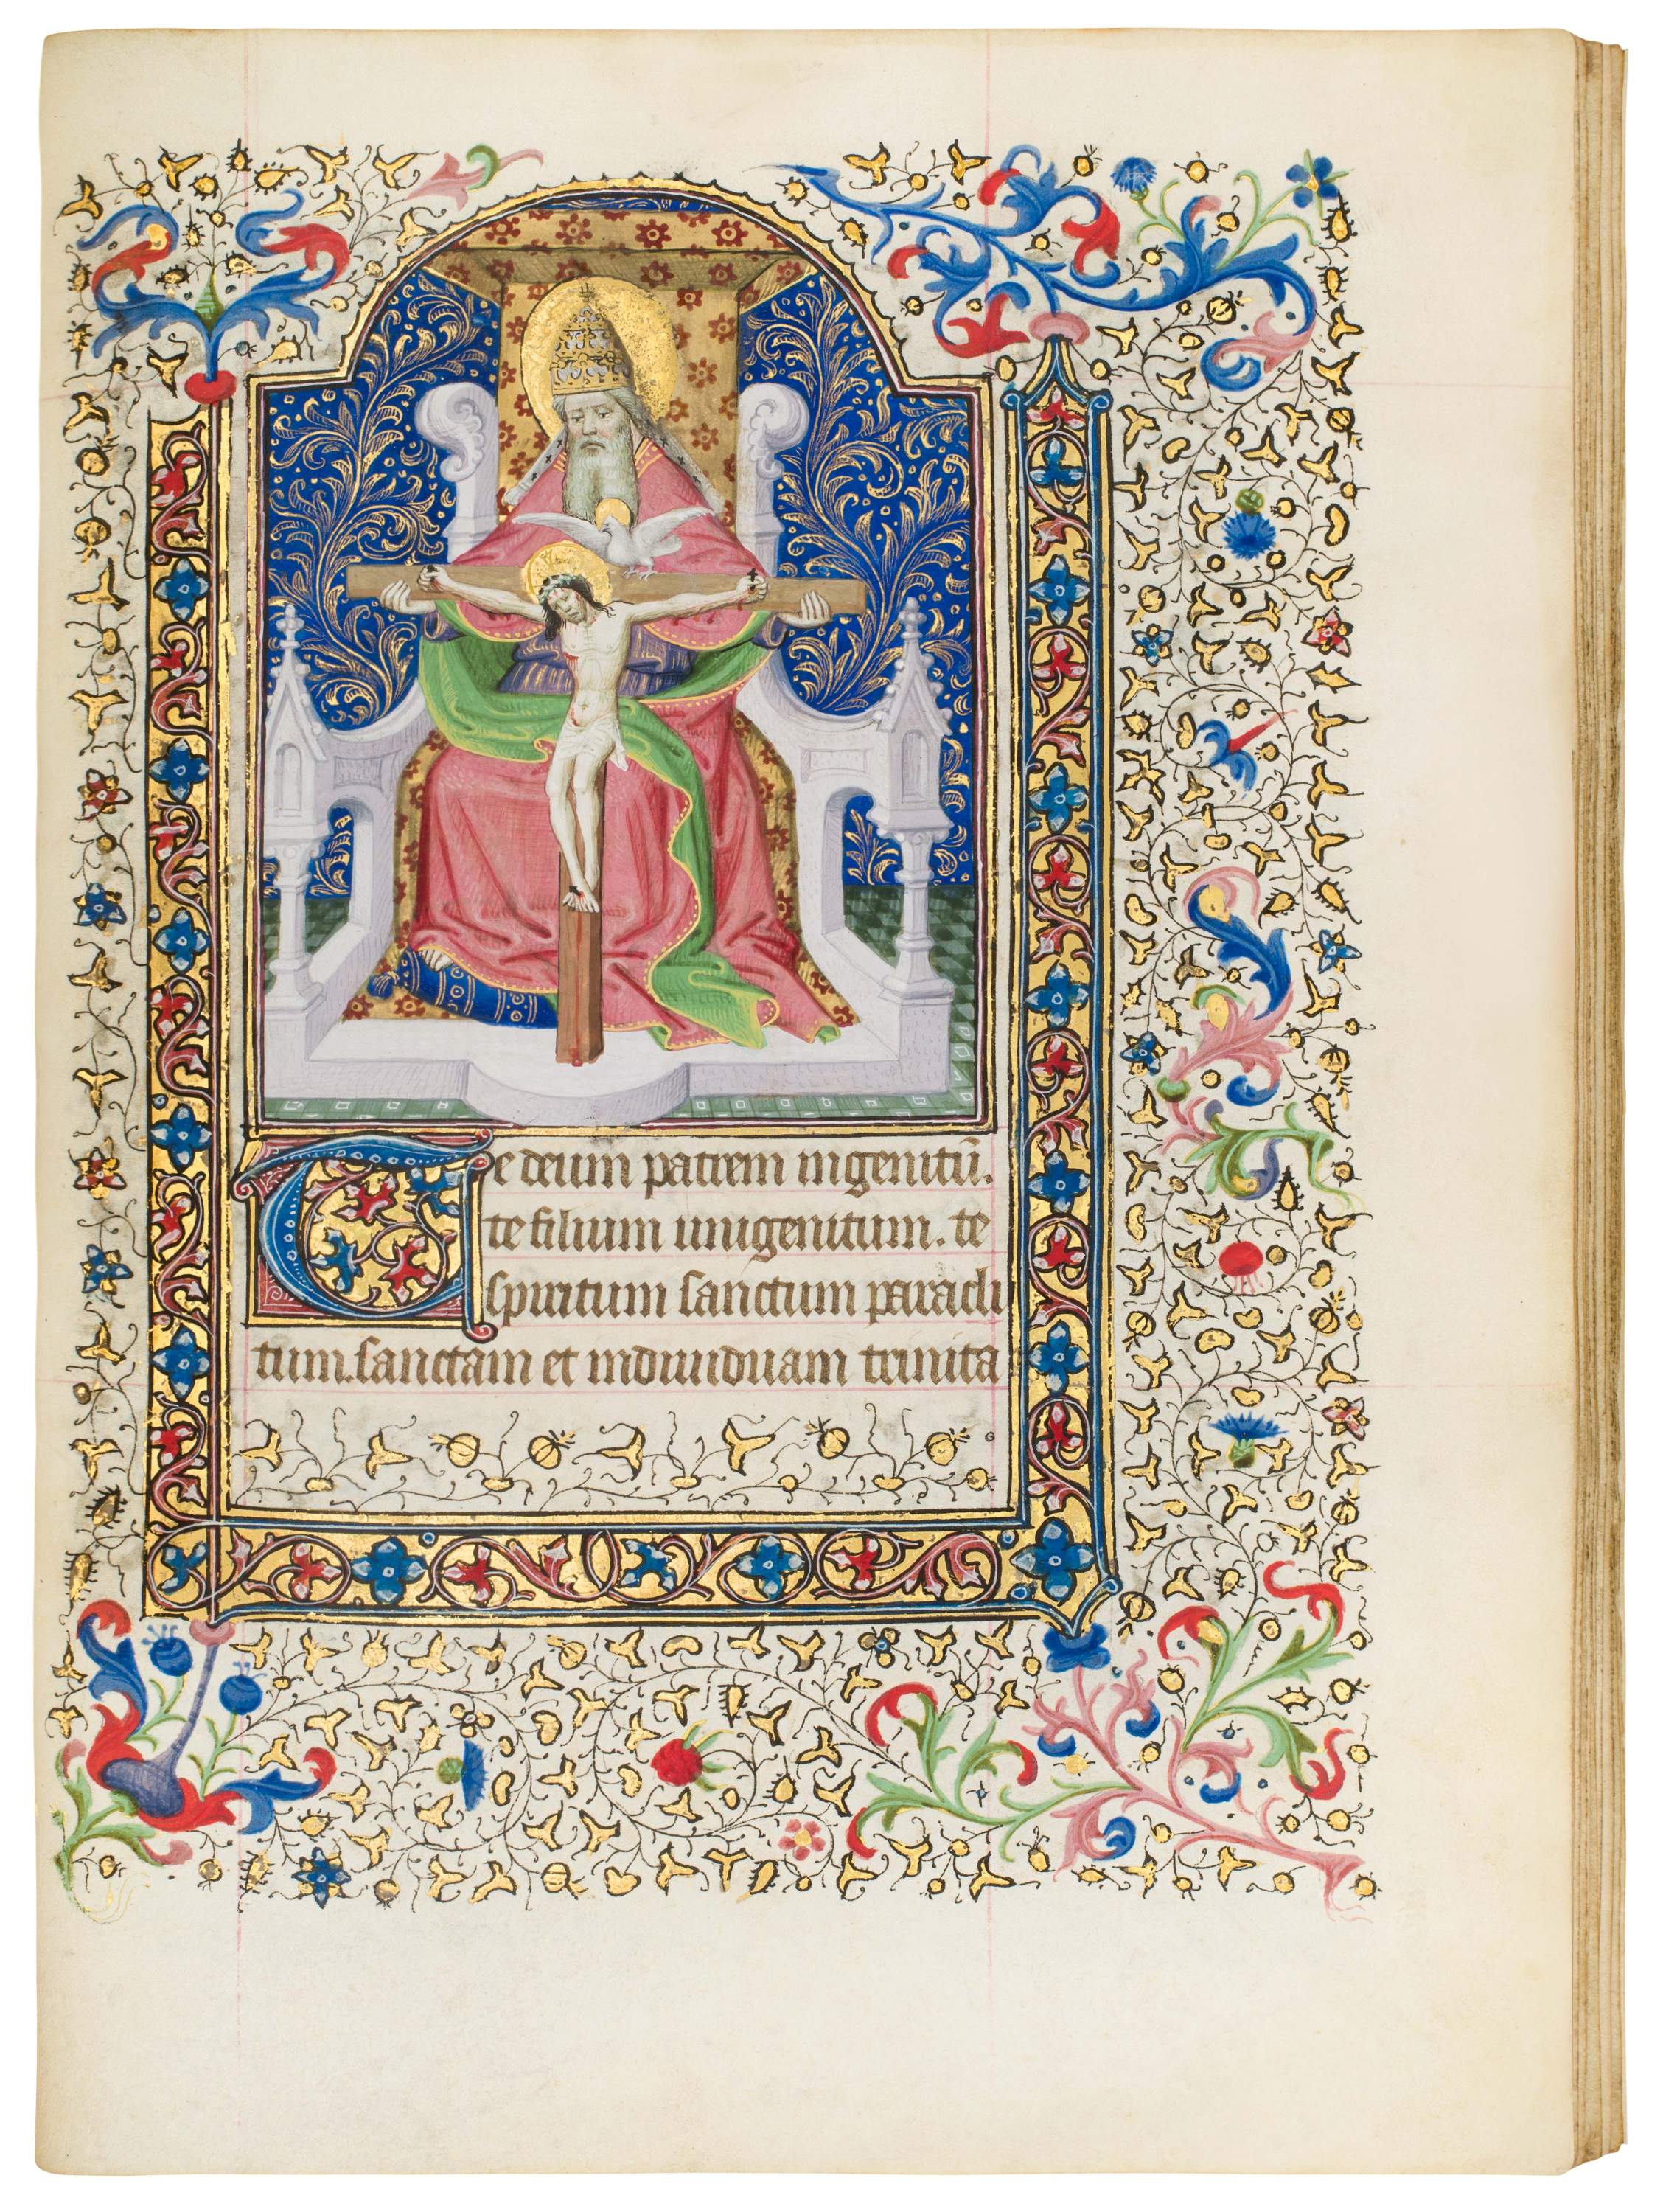 Te deum patrem ingenitū.
te filium unigenitum. te
spiritum sanctum paracli
tum. sanctam et indiuiduam trinita